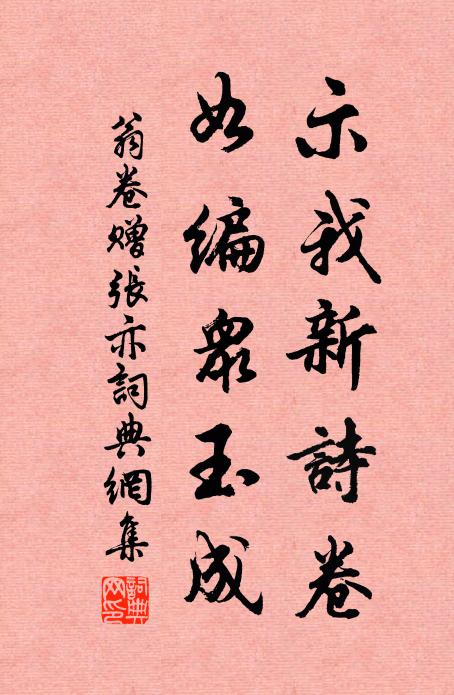 示我新詩卷
如編眾玉成
翁卷贈張亦詞典網集
詞典
网印